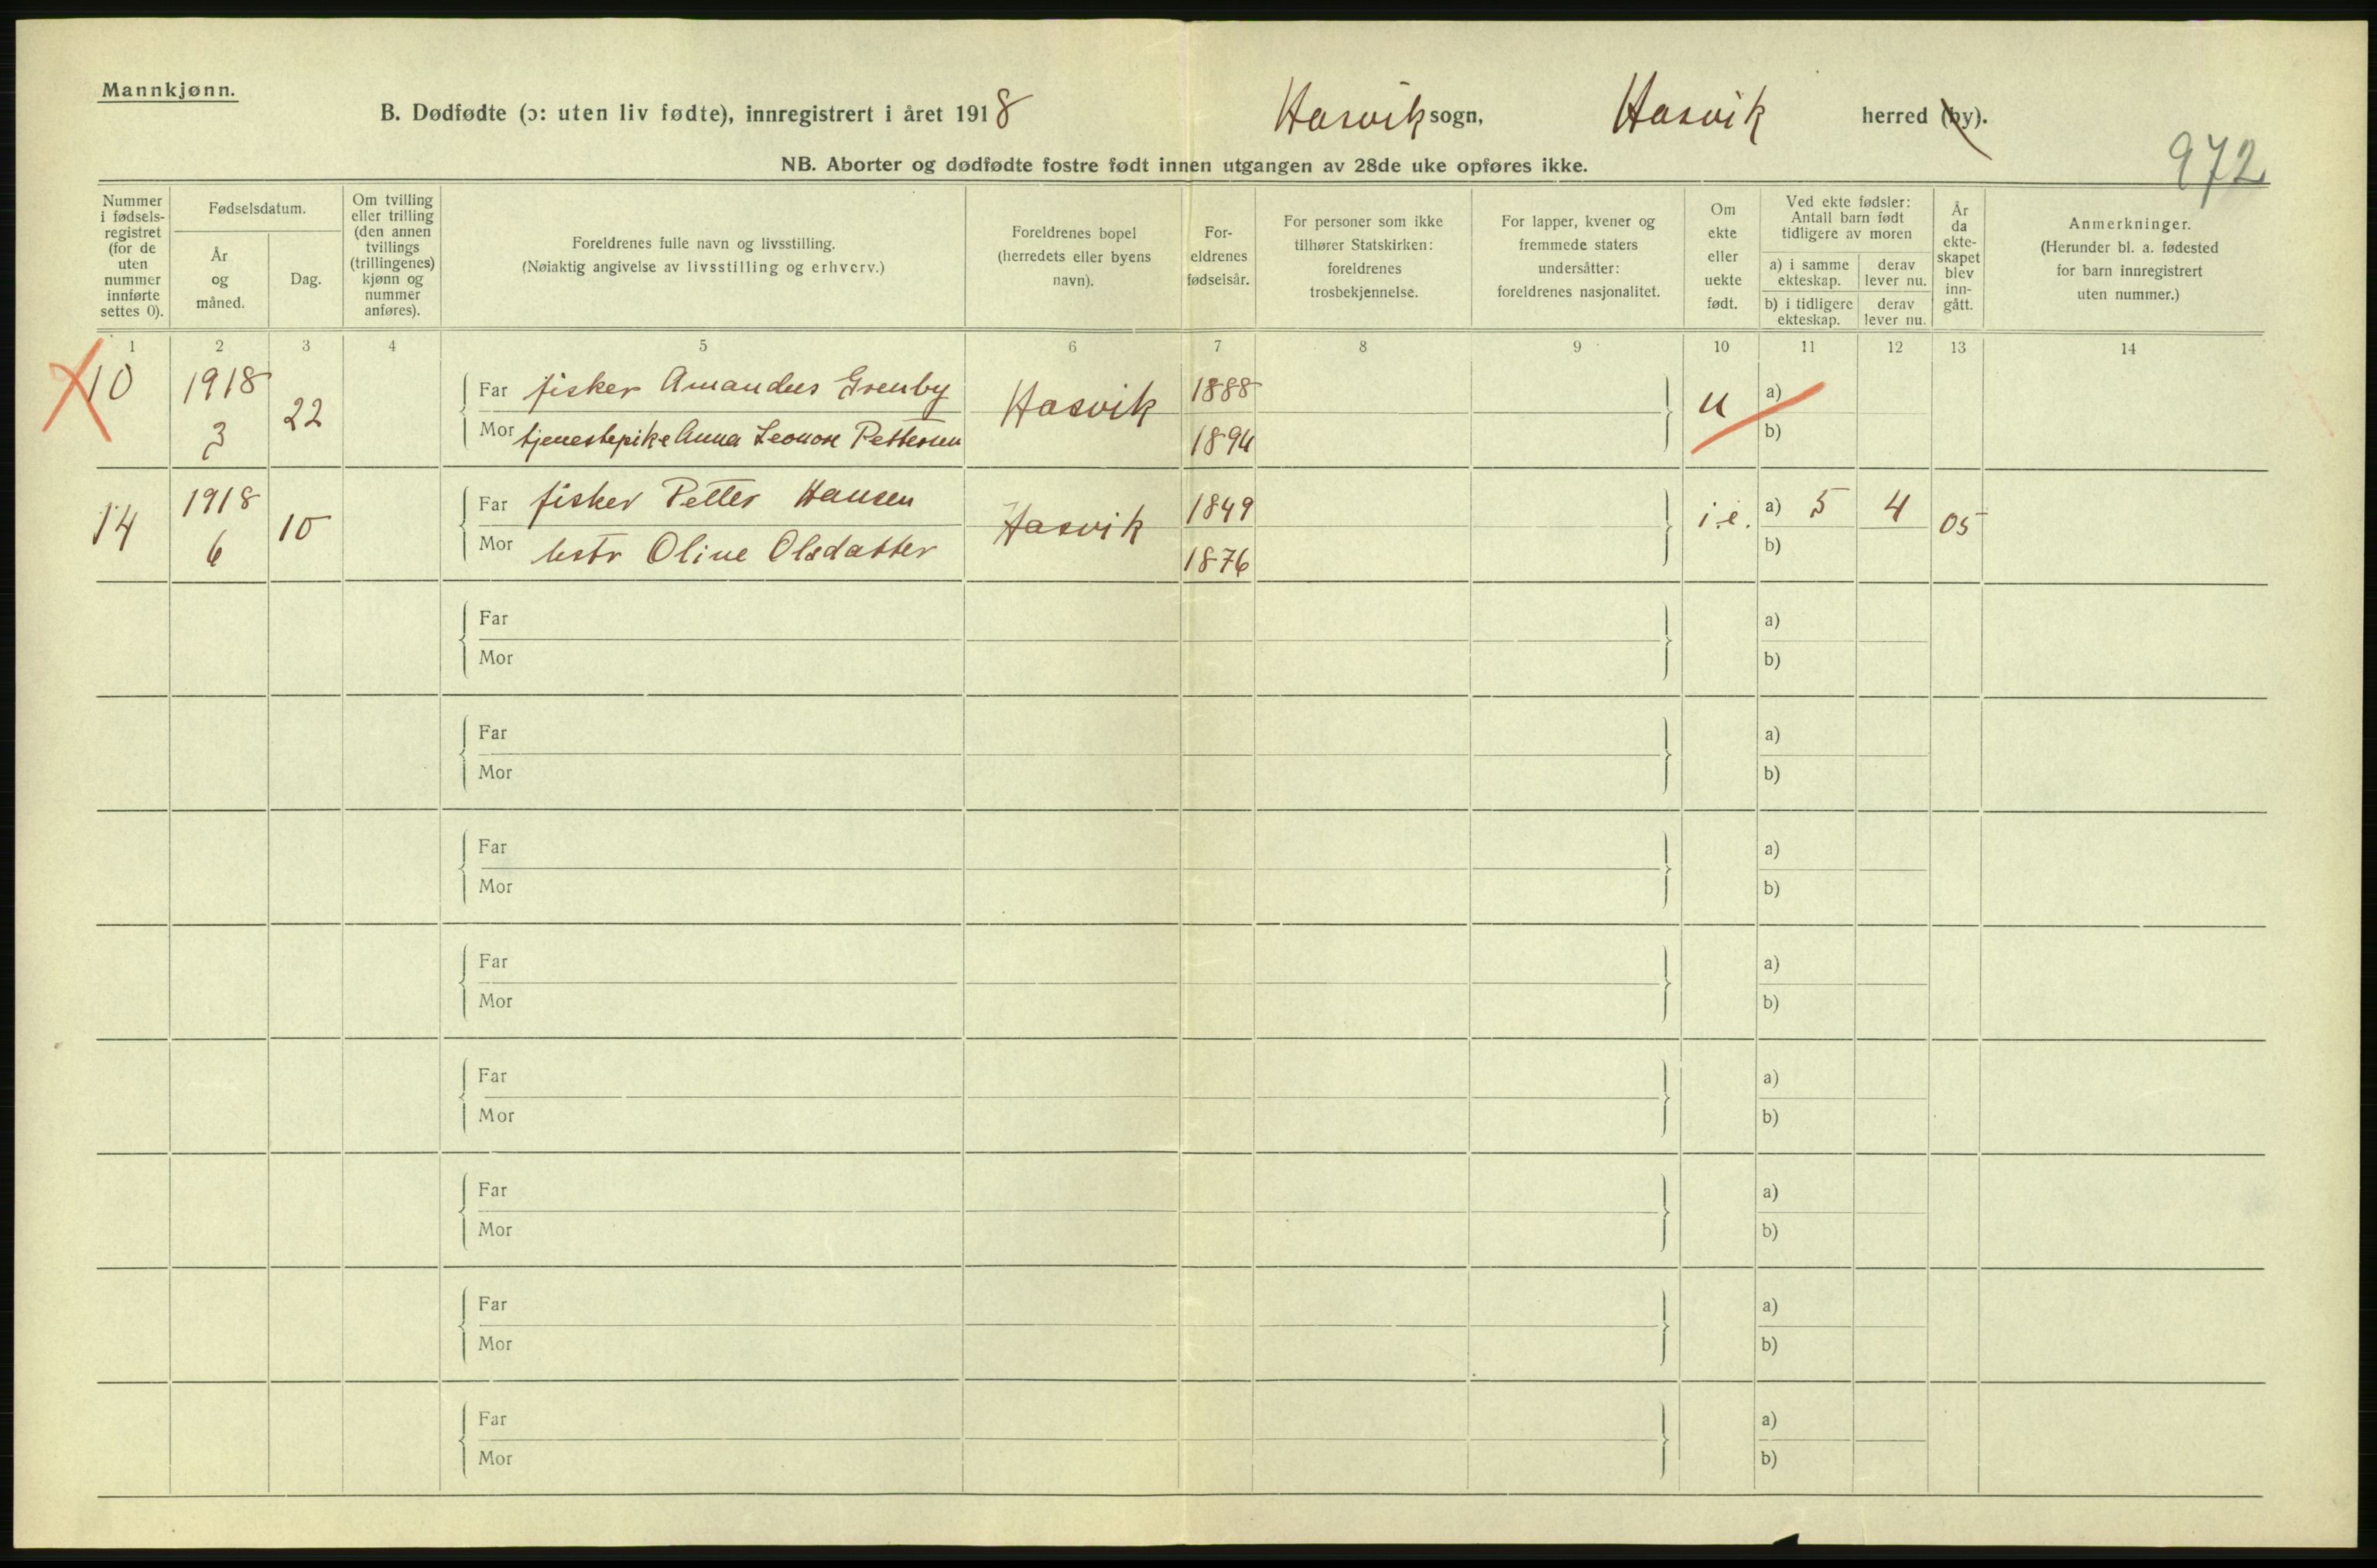 Mannkjønn.
B. Dødfødte (ɔ: uten liv fødte), innregistrert i året 1918 Hasvik sogn, Hasvik herred (by).
972
NB. Aborter og dødfødte fostre født innen utgangen av 28de uke opføres ikke.
Nummer i fødsels-registret (for de uten nummer innførte settes 0).
Fødselsdatum.
År og måned.
Dag.
Om tvilling eller trilling (den annen tvillings (trillingenes) kjønn og nummer anføres).
Foreldrenes fulle navn og livsstilling.
(Nøiaktig angivelse av livsstilling og erhverv.)
Foreldrenes bopel (herredets eller byens navn).
For-eldrenes fødselsår.
For personer som ikke tilhører Statskirken: foreldrenes trosbekjennelse.
For lapper, kvener og fremmede staters undersåtter: foreldrenes nasjonalitet.
Om ekte eller uekte født.
Ved ekte fødsler: Antall barn født tidligere av moren
a) i samme ekteskap.
derav lever nu.
b) i tidligere ekteskap.
derav lever nu.
År da ekte-skapet blev inn-gått.
Anmerkninger.
(Herunder bl. a. fødested for barn innregistrert uten nummer.)
1 2 3 4 5 6 7 8 9 10 11 12 13 14
10 1918 3 22 Far fisker Amandus Grenby Hasvik 1888 u a)
Mor tjenestepike Anna Leonore Pettersen 1894 b)
14 1918 6 10 Far fisker Petter Hansen Hasvik 1849 i.e. a) 5 4 05
Mor hstr Oline Olsdatter 1876 b)
Far a)
Mor b)
Far a)
Mor b)
Far a)
Mor b)
Far a)
Mor b)
Far a)
Mor b)
Far a)
Mor b)
Far a)
Mor b)
Far a)
Mor b)